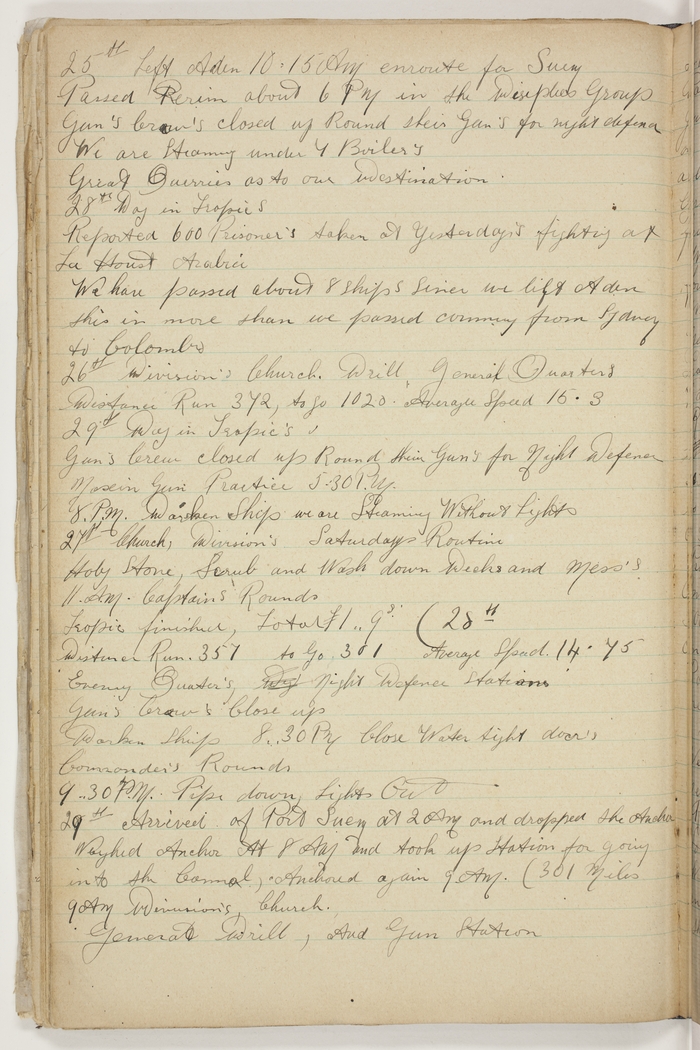 25th Left Aden 10.15 AM enroute for Suez
Passed Perim about 6 PM in the Disiples Group
Gun's Crew's closed up Round their Gun's for night defence
We are Steaming under 4 Boiler's
Great Querries as to our Destination.
28th Day in Tropics
Reported 600 Prisoner's taken at Yesterday's fighting at
La Houst Arabia
We have passed about 8 ships since we left Aden
this in more than we passed comming from Sydney
to Colombo
26th Division's Church. Drill, General Quarters
Distance Run 372, to go 1020. Average Speed 15.3
29th Day in Tropic's
Gun's Crew closed up Round their Gun's for Night Defence
Maxin Gun Practice 5.30 P.M.
8. P.M. Darken Ship we are Steaming Without Lights
27th Church, Division's Saturdays Routine
Holy Stone, Scrub and Wash down Decks and Mess's
11. AM. Captains Rounds
Tropic finished, Total £1..9s. (28th
Distance Run. 357 to Go 301 Average Speed. 14.75
Evening Quarter's, Night Defence Stations
Gun's Crew's Close up
Darken Ship 8..30 PM Close Water tight door's
Commander's Rounds
9..30 P.M. Pipe down, Lights Out
29th Arrived of Port Suez at 2 AM and dropped the Anchor
Weighed Anchor At 8 AM and took up Station for going
into the Cannal, Anchored again 9 AM. (301 Miles
9 AM Divisions, Church.
General Drill, And Gun Station